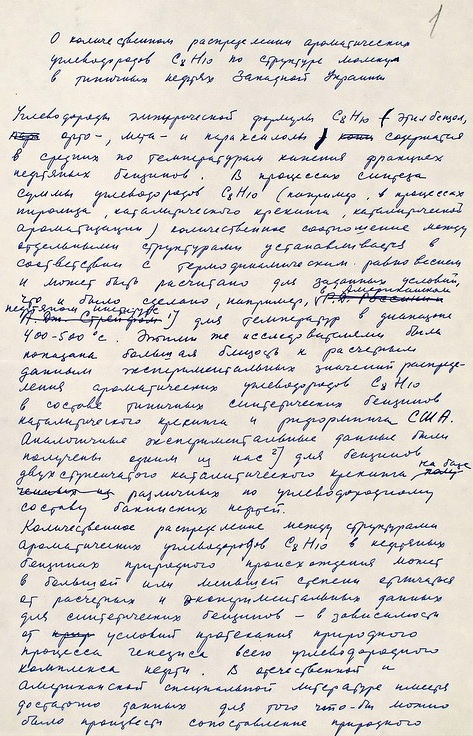 1
О количественном распределении ароматических
углеводородов C8H10 по структуре молекул
в типичных нефтях Западной Украины
Углеводороды эмпирической формулы C8H10 (этилбензол,
орто-, мета- и параксилолы) содержатся
в средних по температурам кипения фракциях
нефтяных бензинов. В процессах синтеза
суммы углеводородов C8H10 (например, в процессах
пиролиза, каталитического крекинга, каталитической
ароматизации) количественное соотношение между
отдельными структурами устанавливается в
соответствии с термодинамическим равновесием
и может быть рассчитано для заданных условий,
что и было сделано, например, в Американском
нефтяном институте 1) для температур в диапазоне
400-500°С. Этими же исследователями была
показана большая близость к расчетным
данным экспериментальных значений распреде-
ления ароматических углеводородов C8H10
в составе типичных синтетических бензинов
каталитического крекинга и риформинга США.
Аналогичные экспериментальные данные были
получены одним из нас 2) для бензинов
двухступенчатого каталитического крекинга на базе
различных по углеводородному
составу бакинских нефтей.
Количественное распределение между структурами
ароматических углеводородов C8H10 в нефтяных
бензинах природного происхождения может
в большой или меньшей степени отличаться
от расчетных и экспериментальных данных
для синтетических бензинов - в зависимости
от условий протекания природного
процесса генезиса всего углеводородного
комплекса нефти. В отечественной и
американской специальной литературе имеется
достаточно данных для того что-бы можно
было произвести сопоставление природного